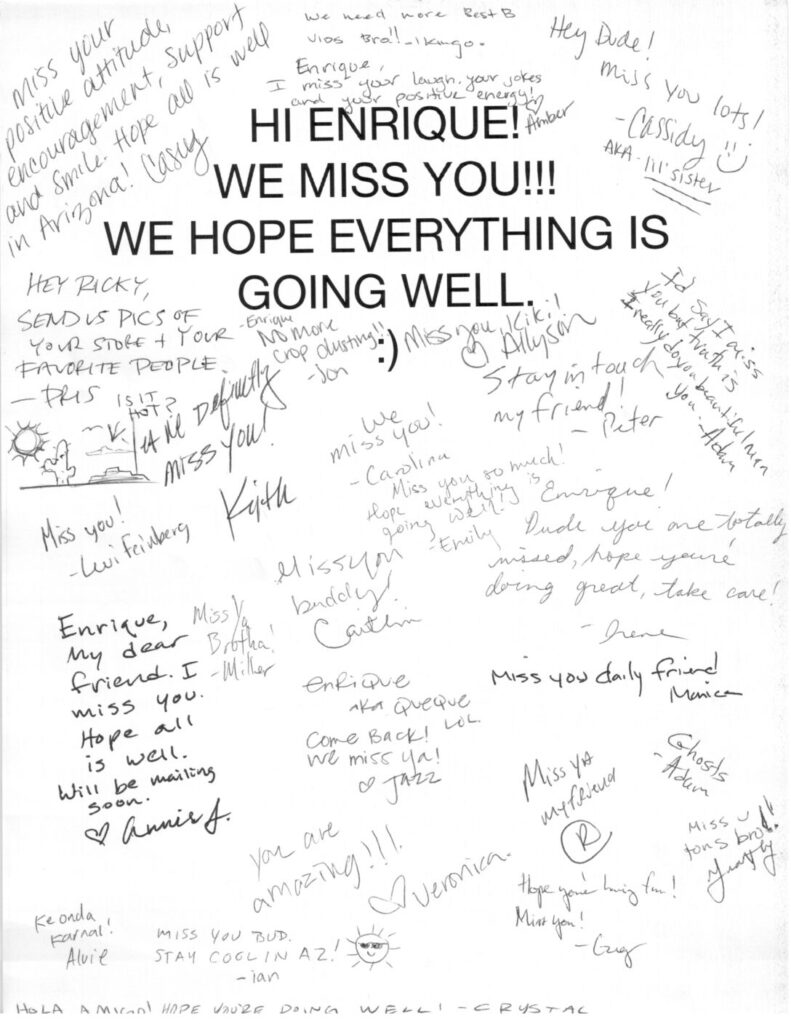 Miss your
positive attitude,
encouragement, support
and smile. Hope all is well
in Arizona! Casey
We need more Best B
vios Bra!!
Enrique,
I miss your laugh, your jokes
and your positive energy!
♡ Amber
Hey Dude!
miss you lots!
-Cassidy
AKA - lil' sister
HI ENRIQUE!
WE MISS YOU!!!
WE HOPE EVERYTHING IS
GOING WELL.
:)
HEY RICKY,
SEND US PICS OF
YOUR STORE + YOUR
FAVORITE PEOPLE.
— PRIS
IS IT
HOT?
-Enrique
NO more
crop dusting!!
-Jon
Miss you, Kiki!
♡ Allyson
I'd say I miss
you but truth is
I really do you beautiful man
You - Adam
Stay in touch
my friend!
- Peter
WE DEFINITLY
MISS YOU!
Keith
We
miss you!
- Carolina
Miss you so much!
Hope everything is
going well!
-Emily
Enrique!
Dude you are totally
missed, hope you're
doing great, take care!
- Irene
Miss you!
-Levi Feinberg
Miss you
buddy!
Caitlin
Enrique,
My dear
friend. I
miss you.
Hope all
is well.
Will be mailing
soon.
♡ Annie J.
Miss Ya
Brotha!
-Miller
Miss you daily friend
Monica
enRique
aka QUEQUE
LOL
Come Back!
we miss ya!
♡ JAZZ
Ghosts
- Adam
Miss YA
my friend
R
Miss u
tons bro!!
you are
amazing!!!
♡ Veronica.
Hope you're having fun!
Miss you!
- Greg
Keonda
Karnal!
Alvie
MISS YOU BUD.
STAY COOL IN AZ!
-ian
HOLA AMIGO! HOPE YOU'RE DOING WELL! - CRYSTAL